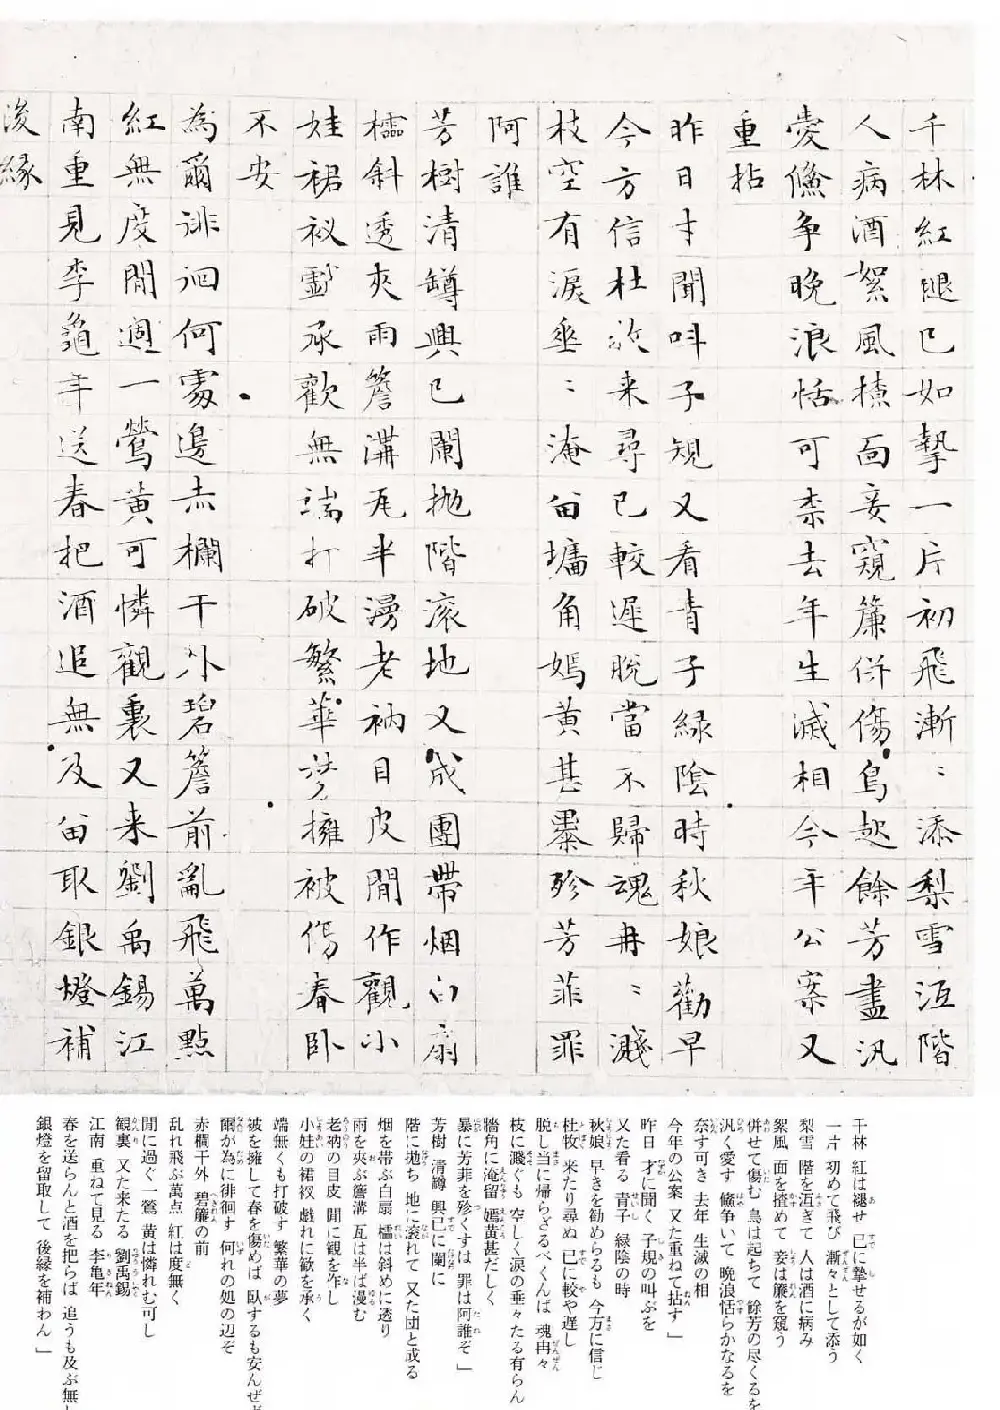 千林紅腿已如摯一片初飛漸〻添梨雪洹階
人病酒絮風樝面妾窺簾併傷鳥起餘芳盡汎
愛儵争晩浪恬可柰去年生滅相今年公案又
重拈
昨日才聞叫子規又看青子緑陰時秋娘勸早
今方信杜牧来尋已較遲脱當不歸魂冉〻濺
枝空有涙垂〻淹留墉角嫣黄甚暴殄芳菲罪
阿誰
芳樹清罇興已闌抛階滚地又成團帶烟白扇
櫺斜透夾雨簷溝瓦半漫老衲目皮閒作觀小
娃裙衩戲承歡無端打破繁華夢擁被傷春卧
不安
為爾徘徊何處邊赤欄干外碧簷前亂飛萬點
紅無度閒過一鶯黄可憐觀裏又来劉禹錫江
南重見李龜年送春把酒追無及留取銀燈補
後緣
千林 紅は褪せ 已に摯せるが如く
一片 初めて飛び 漸々として添う
梨雪 階を洹ぎて 人は酒に病み
絮風 面を揸めて 妾は簾を窺う
併せて傷む 鳥は起ちて 餘芳の尽くるを
汎く愛す 儵争いて 晩浪恬らかなるを
奈す可き 去年 生滅の相
今年の公案 又た重ねて拈す」
昨日 才に聞く 子規の叫ぶを
又た看る 青子 緑陰の時
秋娘 早きを勧めらるも 今方に信じ
杜牧 来たり尋ぬ 已に較や遅し
脱し当に帰らざるべくんば 魂冉々
枝に濺ぐも 空しく涙の垂々たる有らん
牆角に淹留 嫣黄甚だしく
暴に芳菲を殄くすは 罪は阿誰ぞ」
芳樹 清罇 興已に闌に
階に抛ち 地に滾れて 又た団と成る
烟を帯ぶ白扇 櫺は斜めに透り
雨を夾ぶ簷溝 瓦は半ば漫む
老衲の目皮 閒に観を作し
小娃の裙衩 戯れに歓を承く
端無くも打破す 繁華の夢
被を擁して春を傷めば 臥するも安んぜず
爾が為に徘徊す 何れの処の辺ぞ
赤欄干外 碧簷の前
乱れ飛ぶ萬点 紅は度無く
閒に過ぐ一鶯 黄は憐れむ可し
観裏 又た来たる 劉禹錫
江南 重ねて見る 李亀年
春を送らんと酒を把らば 追うも及ぶ無し
銀燈を留取して 後縁を補わん」